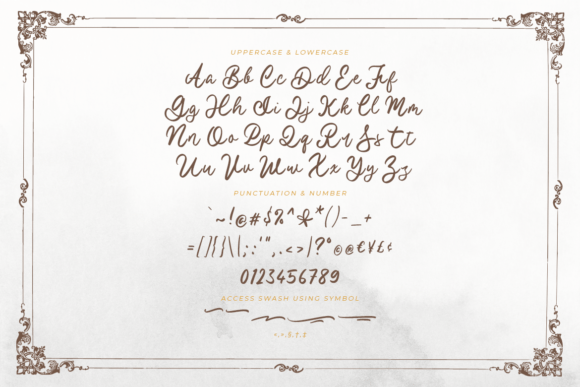 UPPERCASE & LOWERCASE
Aa Bb Cc Dd Ee Ff
Gg Hh Ii Jj Kk Ll Mm
Nn Oo Pp Qq Rr Ss Tt
Uu Vv Ww Xx Yy Zz
PUNCTUATION & NUMBER
`~!@#$%^&*()-_+
=[]{}\|;:'",.<>/?°©®€¥£¢
0123456789
ACCESS SWASH USING SYMBOL